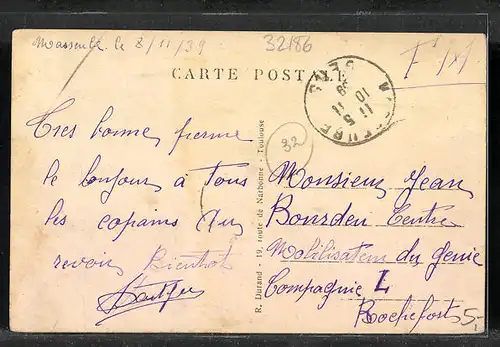 Masseube le 8/11/39
32186
F M
CARTE POSTALE
MASSEUBE GERS
11 5
10 11
39
32
Tres bonne
le bonjour à Tous
les copains Au
revoir Bientot
R. Durand - 19, route de Narbonne - Toulouse
Monsieur Jean
Bourden Centre
Mobilisateur du genie
Compagnie L
Rochefort
5,-